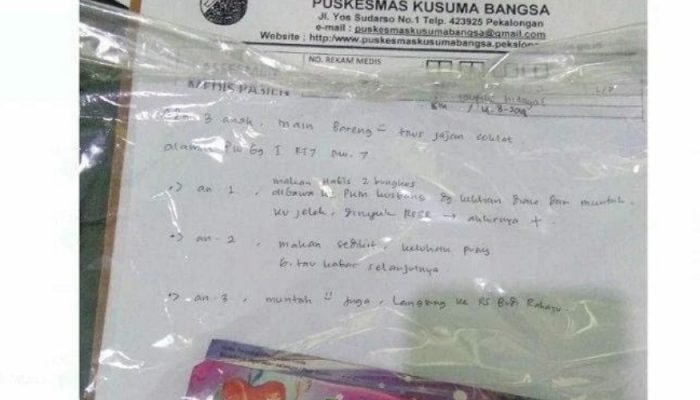 PUSKESMAS KUSUMA BANGSA
Jl. Yos Sudarso No.1 Telp. 423925 Pekalongan
e-mail : puskesmaskusumabangsa@gmail.com
Website : http:/www.puskesmaskusumabangsa.pekalongan
NO. REKAM MEDIS
L/P
3 anak, main bareng" trus jajan coklat
alamat Pw Gg I RT7 no. 7
•> an 1, makan habis 2 bungkus
dibawa ke PKM kusbang dg keluhan dan muntah.
KU jelek, RSCR → akhirnya +
•> an 2, makan sedikit, keluhan pusing
b. tau kabar selanjutnya
•> an 3, muntah" juga, langsung ke RS Budi Rahayu.